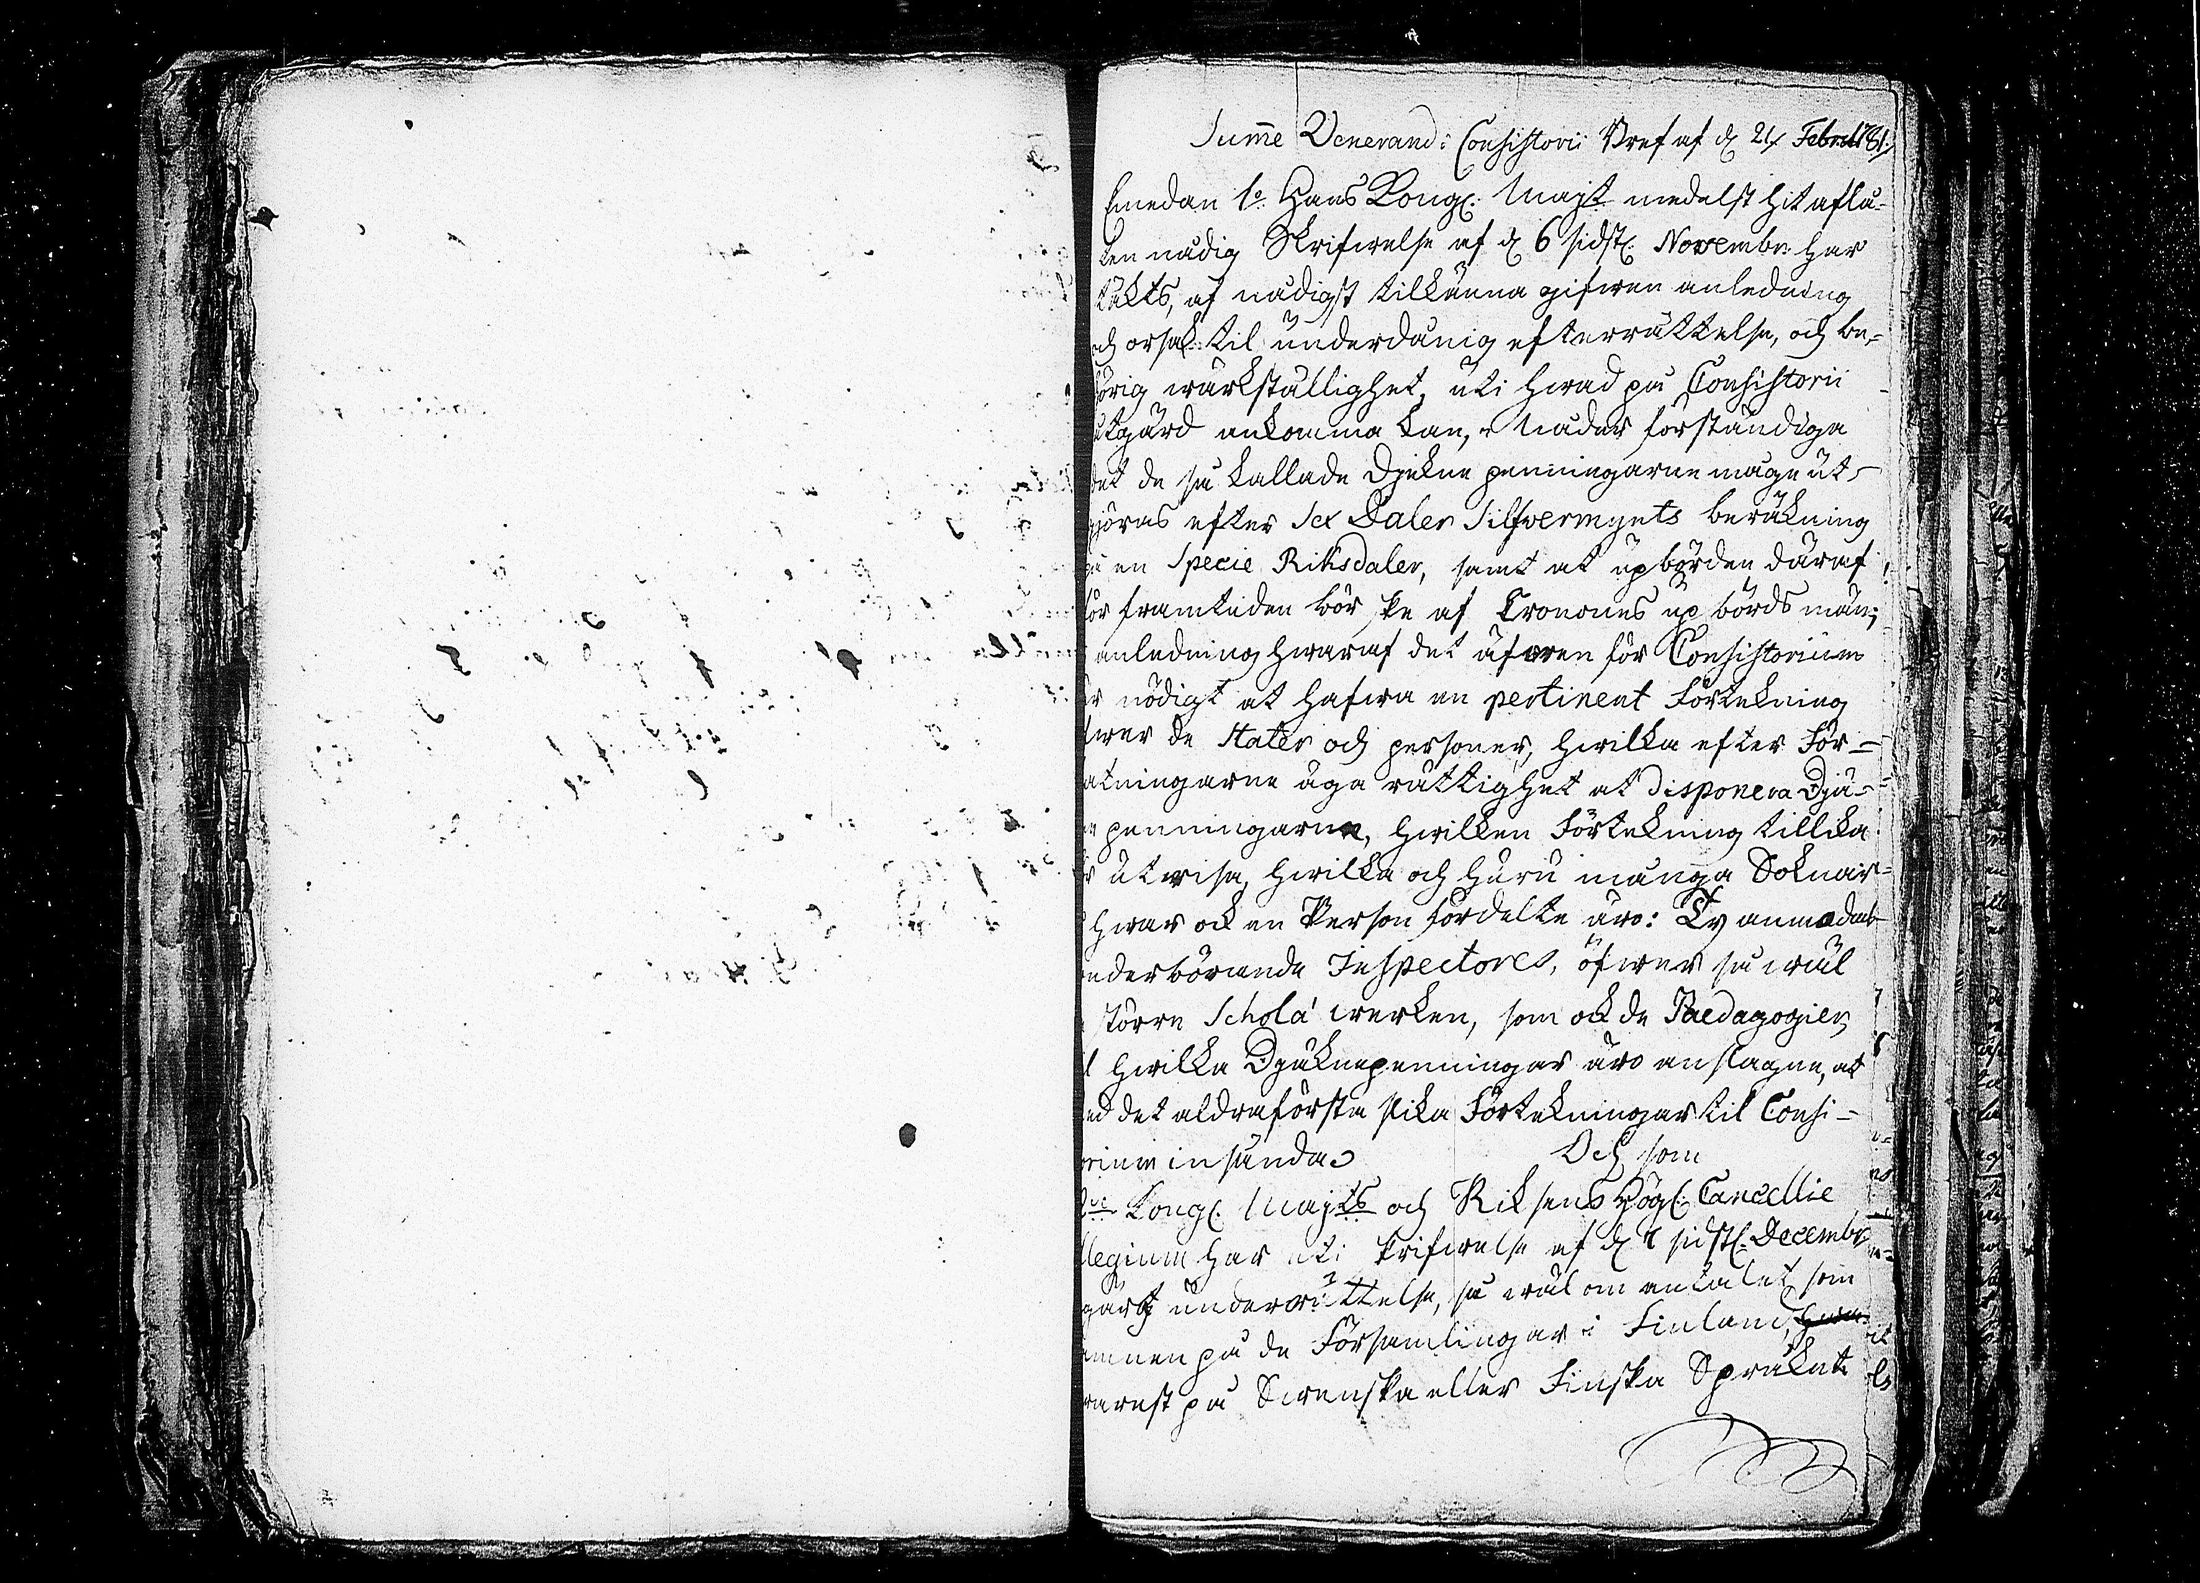 Summe Venerandi Consistorii Bref af d 21 Febru. 1781.
Emedan 1:o Hans Kongl. Majt medelst hit aflå-
ten nådig Skrifwelse af d 6 sidstl. Novembr: har
täkts, af nådigst tilkänna gifwen anledning
och orsak til underdånig efterrättelse, och be-
hörig wärkställighet, uti hwad på Consistorii
åtgärd ankomma kan, i Nåder förständiga
det de så kallade Djekne penningarne måge ut-
göras efter Sex Daler Silfvermynts beräkning
på en Specie Riksdaler, samt at upbörden däraf
för framtiden bör ske af Cronones upbörds män;
anledning hwaraf det äfwen för Consistorium
är nödigt at hafwa en pertinent Förtekning
öfwer de Stater och personer, hwilka efter För-
fatningarne äga rättighet at disponera Djä-
penningarne, hwilken Förtekning tillika
utwisa, hwilka och huru många Soknar
hwar ock en Person fördelte äro: Ty anmodas
wederbörande Inspectores, öfwer så wäl
större Schola werken, som ock de Paedagogier,
hwilka Djäknepenningar äro anslagne, at
med det aldraförsta slika Förtekningar til Consi-
storium insända. Och som
Kongl. Majts och Riksens Högl. Cancellie
Collegium har uti skrifwelse af d 7 sidstl. Decembr
begärt underrättelse, så wäl om antalet, som
namnen på de Församlingar i Finland,
warest på Swenska eller Finska Språket